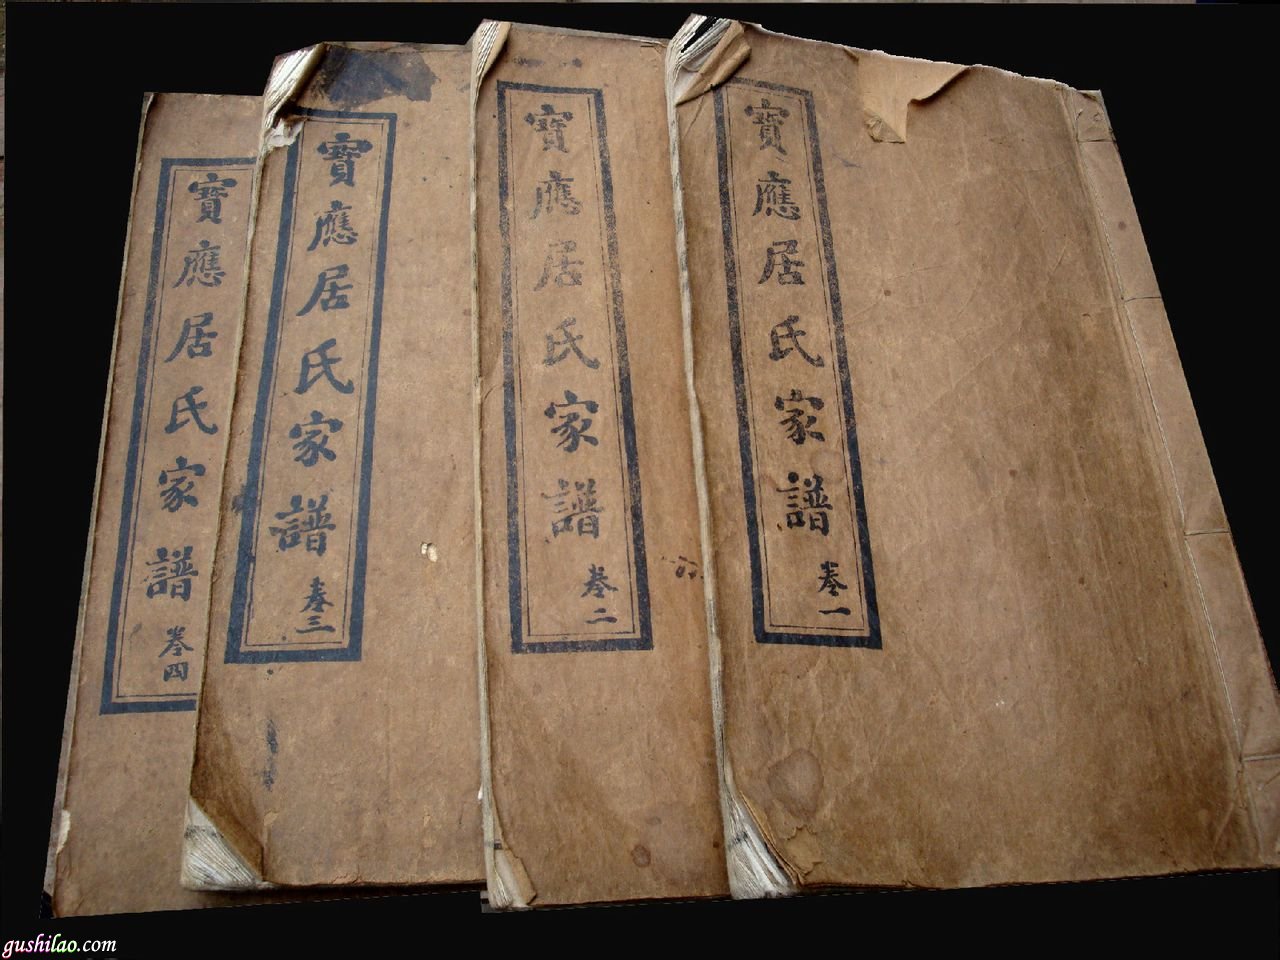 寶應居氏家譜
卷一
寶應居氏家譜
卷二
寶應居氏家譜
卷三
寶應居氏家譜
卷四
gushilao.com